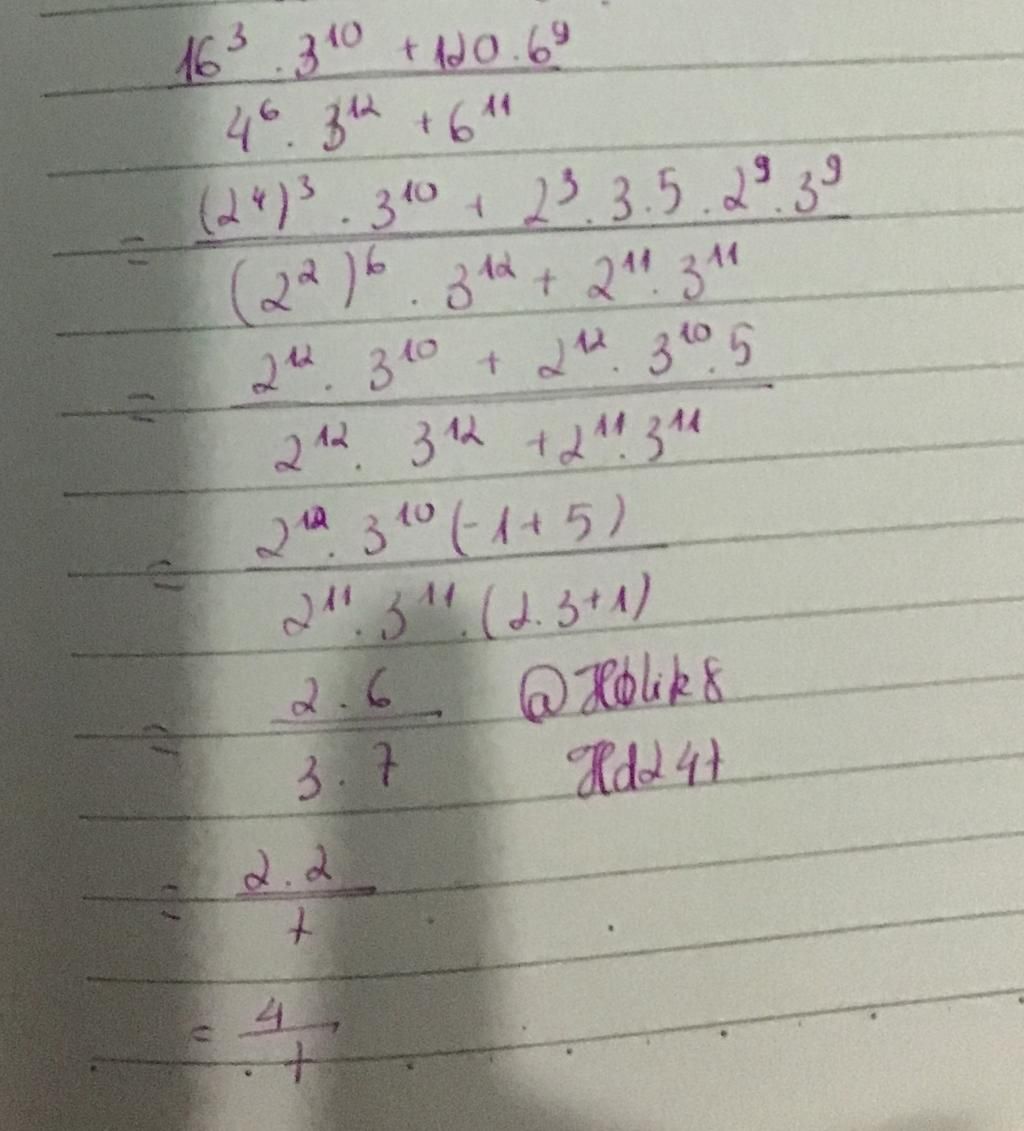 16³ . 3¹⁰ + 120 . 6⁹
4⁶ . 3¹² + 6¹¹
= (2⁴)³ . 3¹⁰ + 2³ . 3 . 5 . 2⁹ . 3⁹
(2²)⁶ . 3¹² + 2¹¹ . 3¹¹
= 2¹² . 3¹⁰ + 2¹² . 3¹⁰ . 5
2¹² . 3¹² + 2¹¹ . 3¹¹
= 2¹² . 3¹⁰ (-1 + 5)
2¹¹ . 3¹¹ . (2 . 3 + 1)
= 2 . 6
3 . 7
= 2 . 2
7
= 4
7